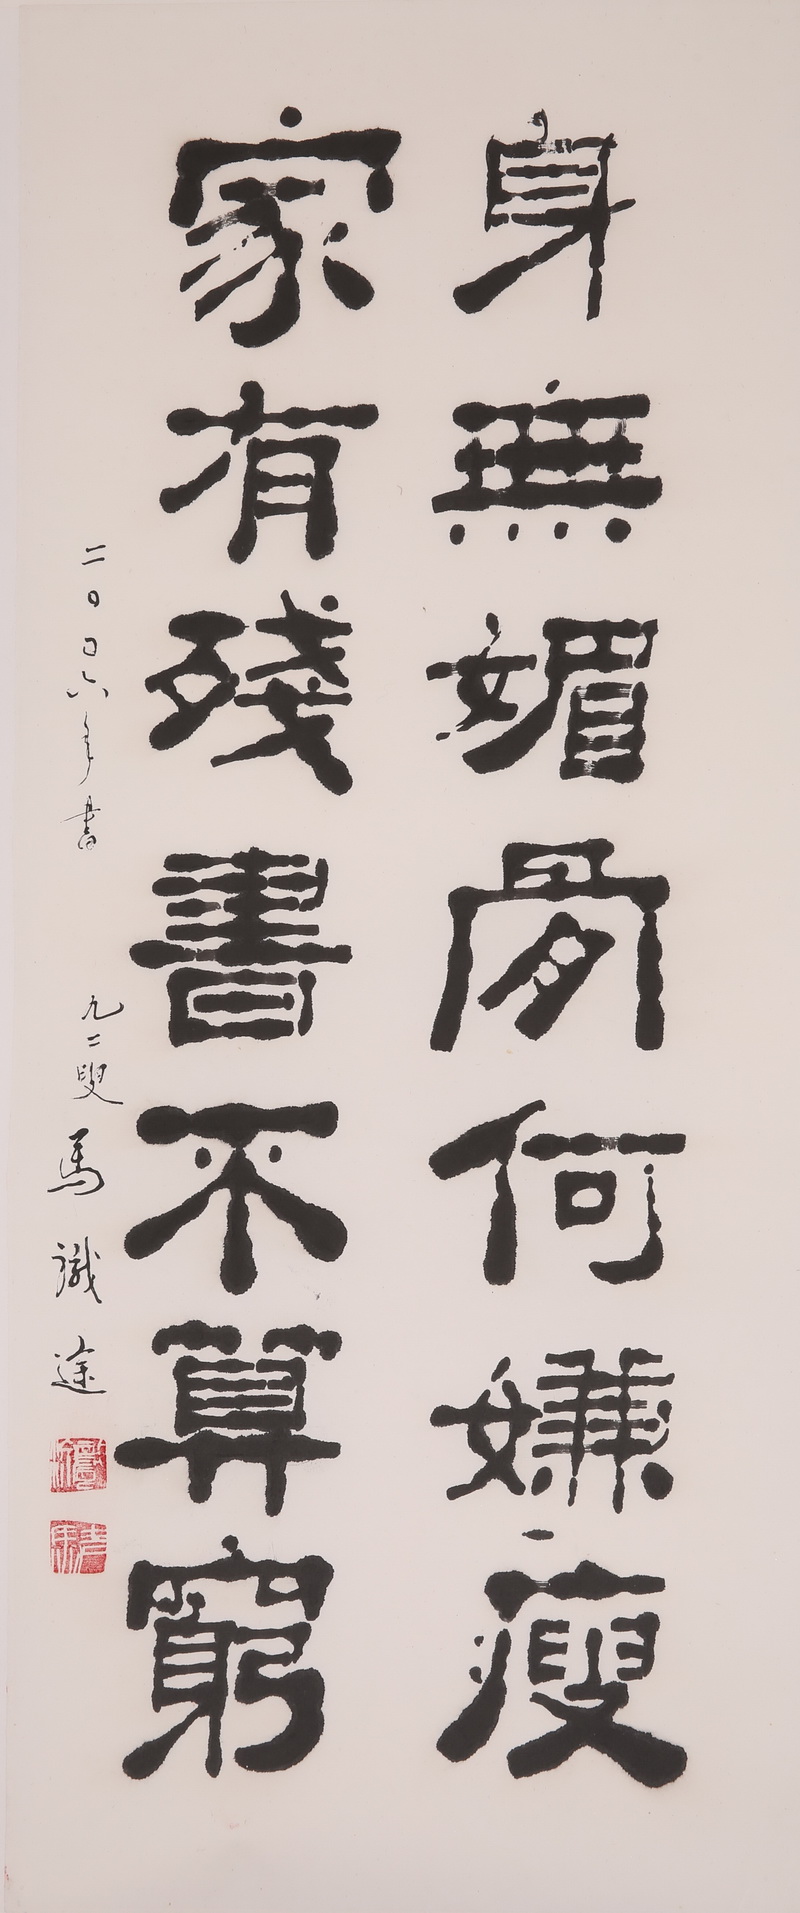 身無媚骨何嫌瘦
家有殘書不算窮
二〇〇六年書
九二叟馬識途